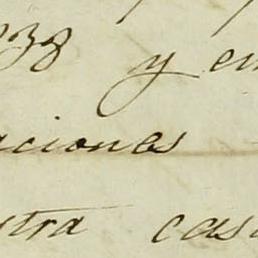 y en
aciones
stra casa